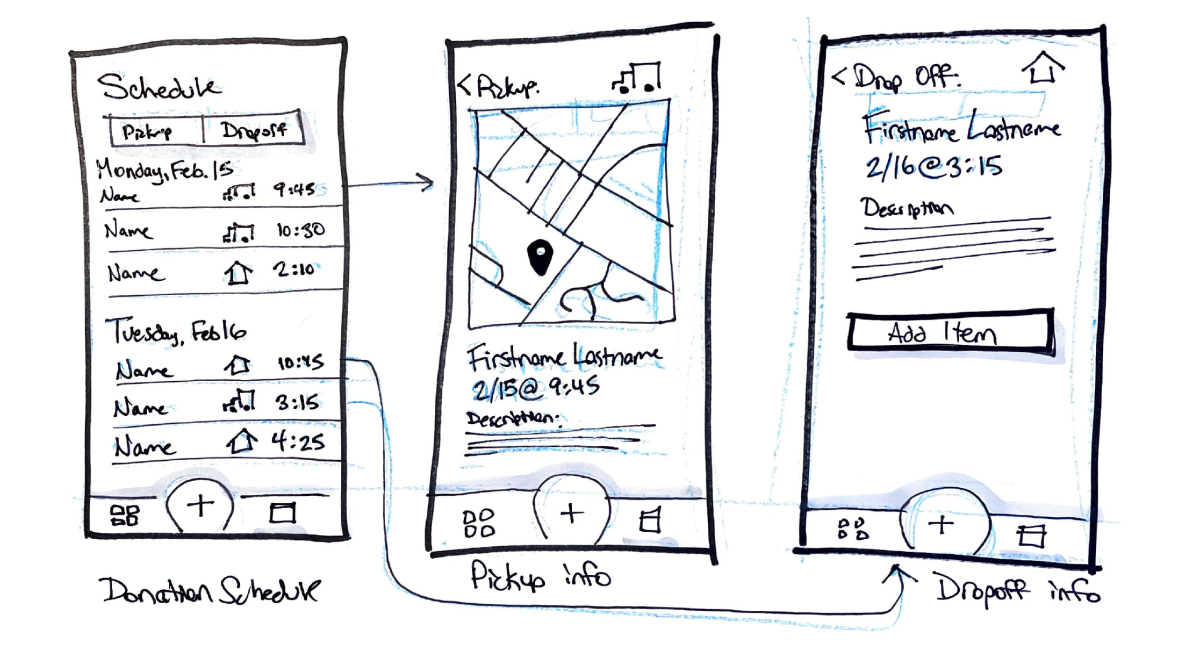 Schedule
Pickup Dropoff
Monday, Feb. 15
Name 9:45
Name 10:30
Name 2:10
Tuesday, Feb 16
Name 10:45
Name 3:15
Name 4:25
+
Donation Schedule
< Pickup.
Firstname Lastname
2/15@ 9:45
Description:
+
Pickup info
< Drop Off:
Firstname Lastname
2/16@3:15
Description
Add Item
+
Dropoff info